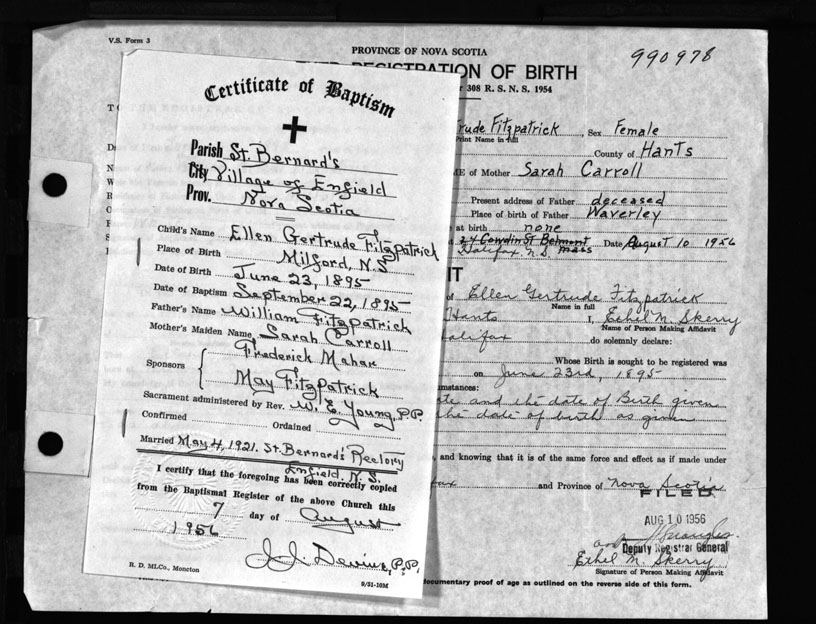 V.S. Form 3
PROVINCE OF NOVA SCOTIA
990978
REGISTRATION OF BIRTH
308 R. S. N. S. 1954
Certificate of Baptism
Parish St. Bernard's
City Village of Enfield
Prov. Nova Scotia
Child's Name Ellen Gertrude Fitzpatrick
Place of Birth Milford, N.S
Date of Birth June 23, 1895
Date of Baptism September 22, 1895
Father's Name William Fitzpatrick
Mother's Maiden Name Sarah Carroll
Sponsors { Frederick Mahar
May Fitzpatrick
Sacrament administered by Rev. W. E. Young, P.P.
Confirmed Ordained
Married May 4, 1921. St. Bernard's Rectory
Enfield, N.S.
I certify that the foregoing has been correctly copied
from the Baptismal Register of the above Church this
7 day of August
1956
J. J. Devine, P.P.
R. D. MLCo., Moncton
9/51-10M
rude Fitzpatrick, Sex Female
Print Name in full
County of Hants
ME of Mother Sarah Carroll
Present address of Father deceased
Place of birth of Father Waverley
at birth none
24 Cowdin St Belmont Mass
Halifax, N.S. Date August 10 1956
IT
of Ellen Gertrude Fitzpatrick
Name in full
Hants I, Ethel M. Skerry
Name of Person Making Affidavit
Halifax do solemnly declare:
Whose Birth is sought to be registered was
on June 23rd, 1895
umstances:
ate and the date of Birth given
the date of birth as given
, and knowing that it is of the same force and effect as if made under
fax and Province of Nova Scotia
FILED
AUG 10 1956
Deputy Registrar General
Ethel M. Skerry
Signature of Person Making Affidavit
documentary proof of age as outlined on the reverse side of this form.